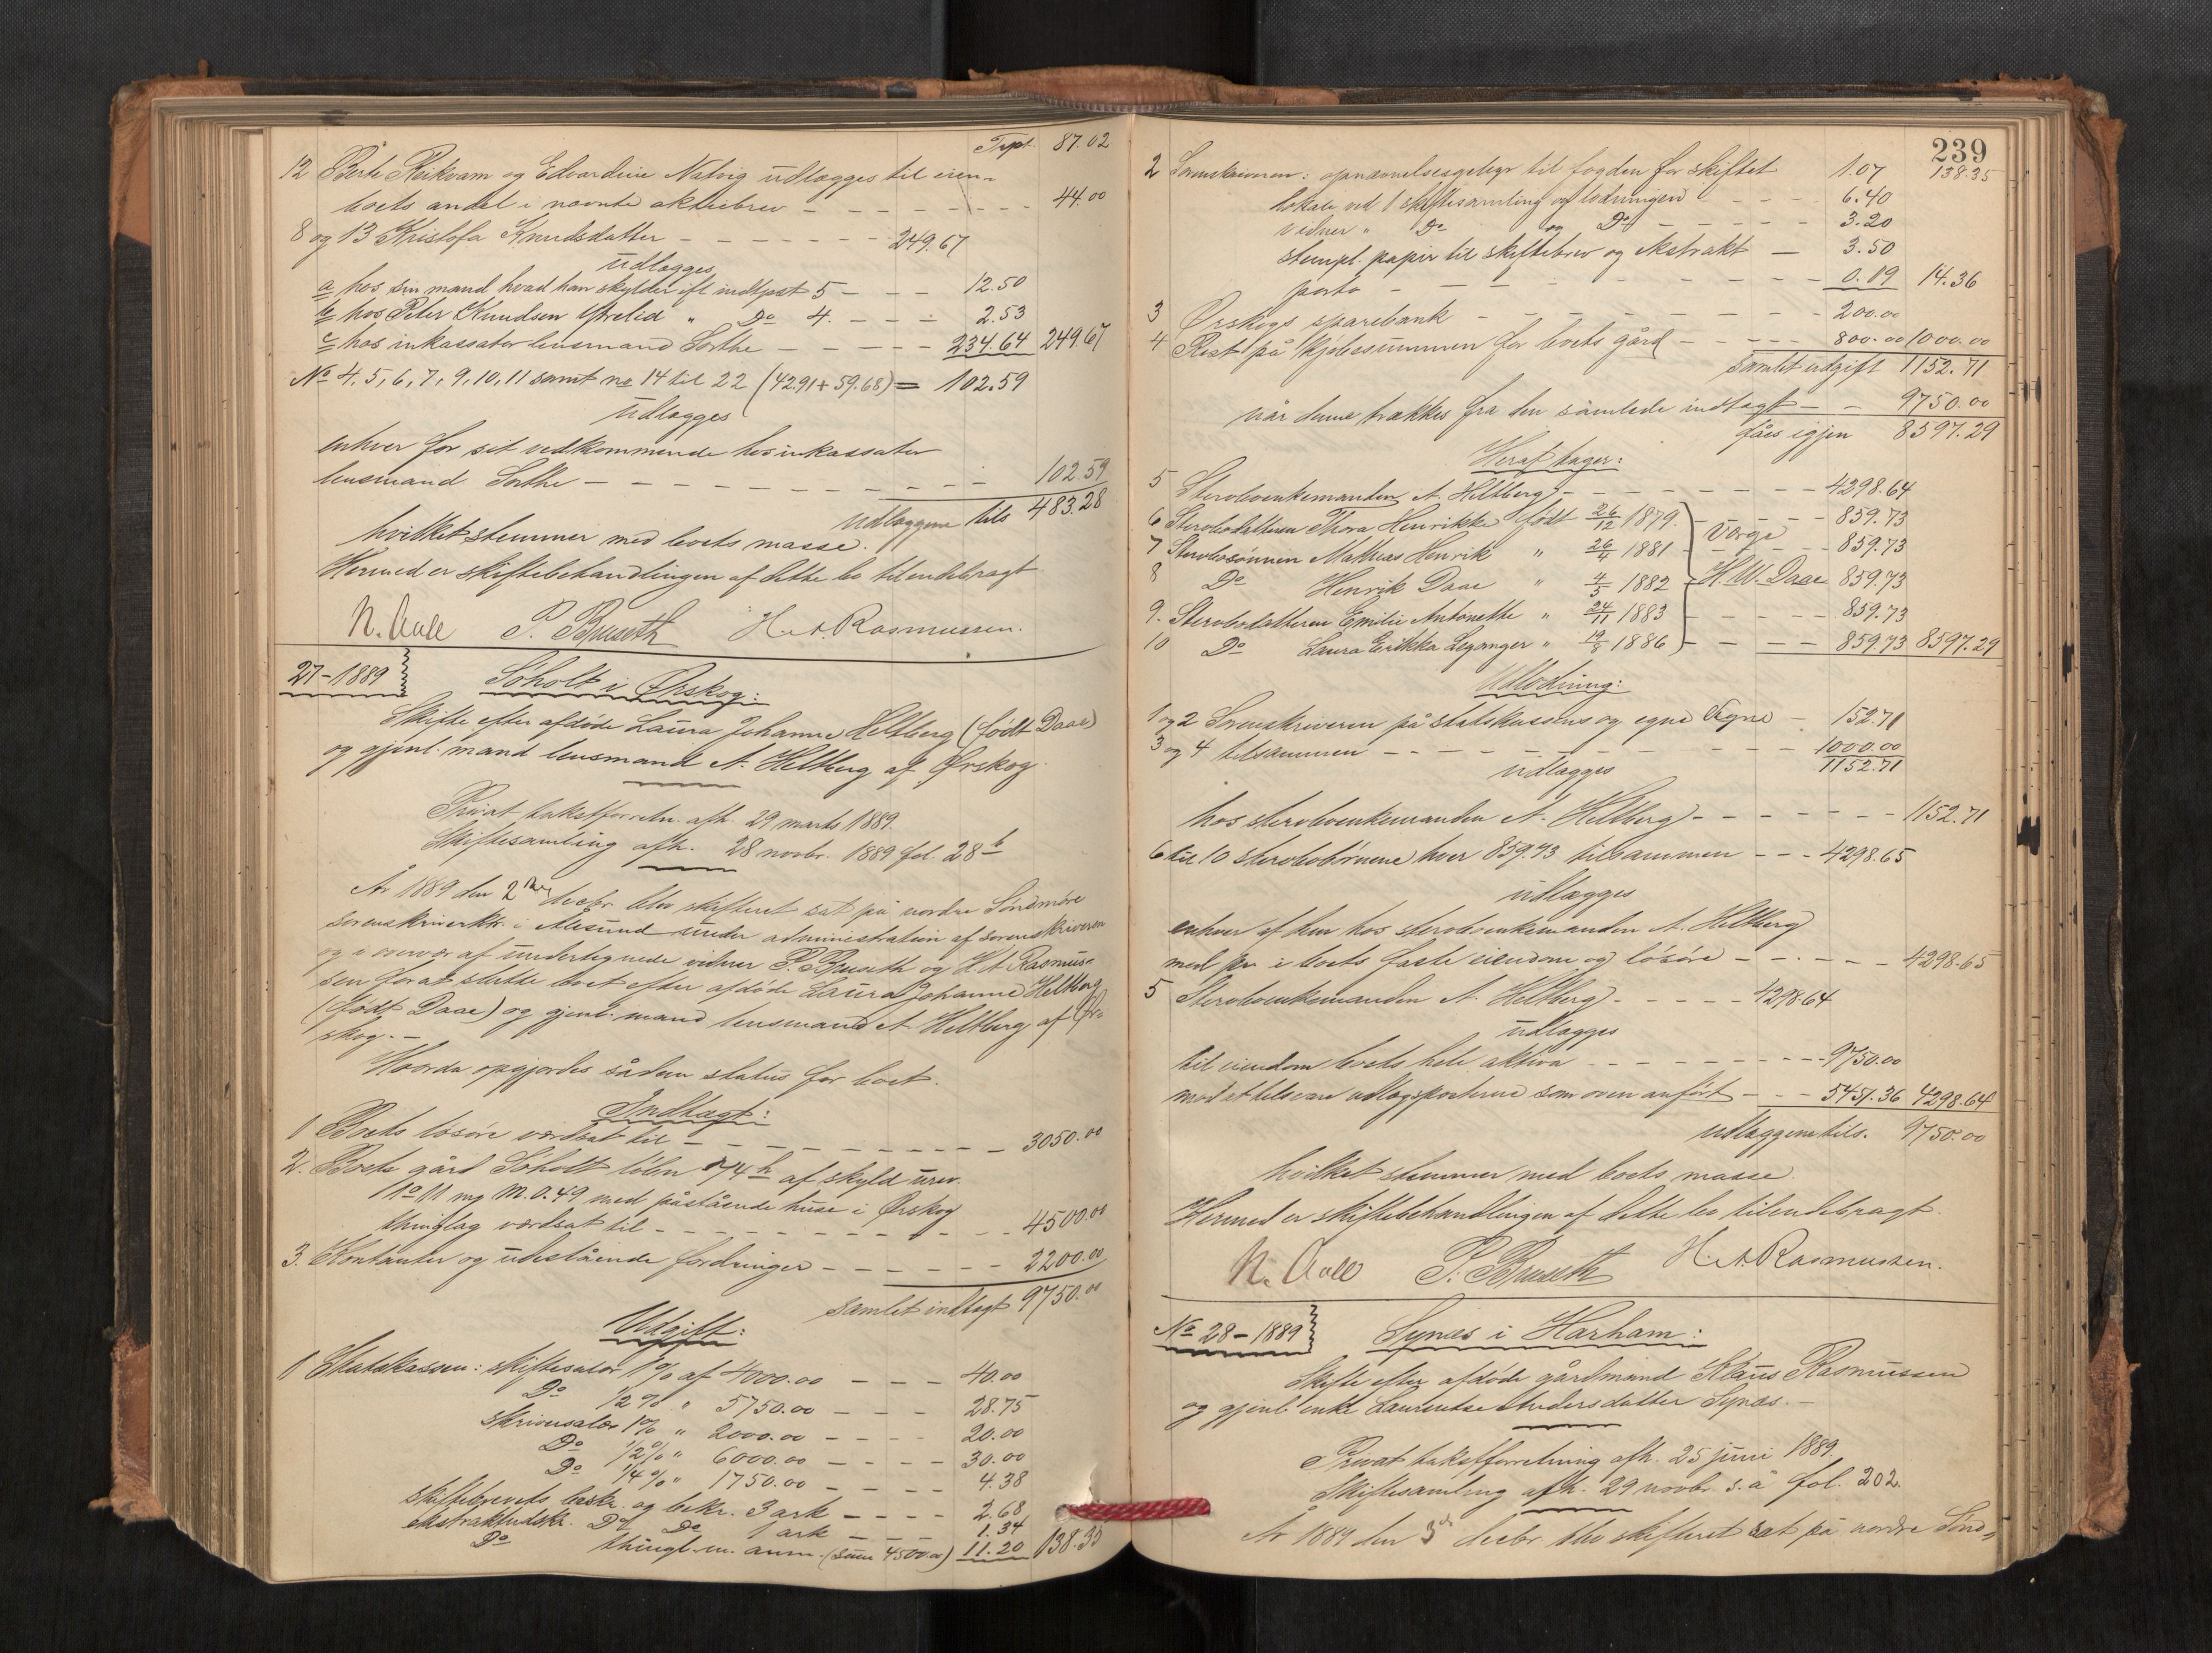 Trpt. 87.02
12 Berte Reikvam og Edvardine Natvig udlægges til eien-
boets andel i nævnte aktiebrev - - - 44.00
8 og 13 Kristofa Knudsdatter - - - 249.67
udlægges
a hos sin mand hvad han skylder ifl indtpst 5 - - - 12.50
b hos Peter Knudsen Ytrelid " Do 4. - - - 2.53
c hos inkassator lensmand Sorthe - - - 234.64 249.67
No 4, 5, 6, 7, 9, 10, 11 samt no 14 til 22 (42.91 + 59.68) = 102.59
udlægges
enhver for sit vedkommende hos inkassator
lensmand Sorthe - - - 102.59
udlæggene tils 483.28
hvilket stemmer med boets masse.
Hermed er skiftebehandlingen af dette bo tilendebragt
N. Aall P. Bruseth H. A. Rasmussen.
27-1889 Söholt i Ørskog:
Skifte efter afdöde Laura Johanne Heltberg (födt Daae)
og gjenl. mand lensmand A. Heltberg af Ørskog.
Privat takstforretn. afh. 29 marts 1889.
Skiftesamling afh. 28 novbr. 1889 fol. 28 b
År 1889 den 2den decbr. blev skifteret sat på nordre Söndmöre
sorenskriverktr. i Ålesund under administration af sorenskriveren
og i overvær af undertegnede vidner P. Bruseth og H. A. Rasmus-
sen for at slutte boet efter afdöde Laura Johanne Heltberg
(födt Daae) og gjenl. mand lensmand A. Heltberg af Ør-
skog. -
Hvorda opgjordes sådan status for boet.
Indtægt:
1 Boets lösöre værdsat til - - - 3050.00
2. Boets gård Söholt löbn 174 b af skyld urev.
1 o 11 ng m. 0.49 med påstående huse i Ørskog
thinglag værdsat til - - - 4500.00
3. Kontanter og udestående fordringer - - - 2200.00
samlet indtægt 9750.00
Udgift:
1 Statskassen: skiftesalær 1 % af 4000.00 - - - 40.00
Do 1/2 % " 5750.00 - - - 28.75
skriversalær 1 % " 2000.00 - - - 20.00
Do 1/2 % " 6000.00 - - - 30.00
Do 1/4 % " 1750.00 - - - 4.38
skiftebrevets beskr. og bekr. 3 ark - - - 2.68
ekstraktudskr. Do Do 1 ark - - - 1.34
Do thingl. m. anm. (sum 4500.00) 11.20 138.35
239
138.35
2 Sorenskriveren: opnævnelsesgebyr til fogden for skiftet 1.07
lokale ved 1 skiftesamling og lodningen - - - 6.40
vidner " Do og Do - - - 3.20
stempl. papir til skiftebrev og ekstrakt - 3.50
porto - - - 0.19 14.36
3 Ørskogs sparebank - - - 200.00
4 Rest på kjöbesummen for boets gård - - - 800.00 1000.00
samlet udgift 1152.71
når denne trækkes fra den samlede indtægt - - 9750.00
fåes igjen 8597.29
Heraf tager:
5 Sterboenkemanden A. Heltberg - - - 4298.64
6 Sterbodatteren Thora Henrikke födt 26/12 1879. - - - 859.73
7 Sterbosönnen Mathias Henrik " 26/4 1881 - Værge - - 859.73
8 Do Henrik Daae " 4/5 1882 H. W. Daae 859.73
9. Sterbodatteren Emilie Antonette " 24/11 1883 - - - 859.73
10 Do Laura Erikka Leganger " 19/8 1886 - - - 859.73 8597.29
Udlodning:
1 og 2 Sorenskriveren på statskassens og egne vegne - 152.71
3 og 4 tilsammen - - - 1000.00
1152.71
udlægges
hos sterboenkemanden A. Heltberg - - - 1152.71
6 til 10 sterbobörnene hver 859.73 tilsammen - - - 4298.65
udlægges
enhver af dem hos sterboenkemanden A. Heltberg
med pr. i boets faste eiendom og lösöre - - - 4298.65
5 Sterboenkemanden A. Heltberg - - - 4298.64
udlægges
til eiendom boets hele aktiva - - - 9750.00
mod at tilsvare udlægsposterne som oven anfört - - - 5451.36 4298.64
udlæggene tils. 9750.00
hvilket stemmer med boets masse.
Hermed er skiftebehandlingen af dette bo tilendebragt.
N. Aall P. Bruseth H. A. Rasmussen.
No 28-1889 Synæs i Harham:
Skifte efter afdöde gårdmand Klaus Rasmussen
og gjenl. enke Laurentse Andersdatter Synæs. -
Privat takstforretning afh. 25 juni 1889.
Skiftesamling afh. 29 novbr. s. å fol. 202.
År 1889 den 3de decbr. blev skifteret sat på nordre Sönd-